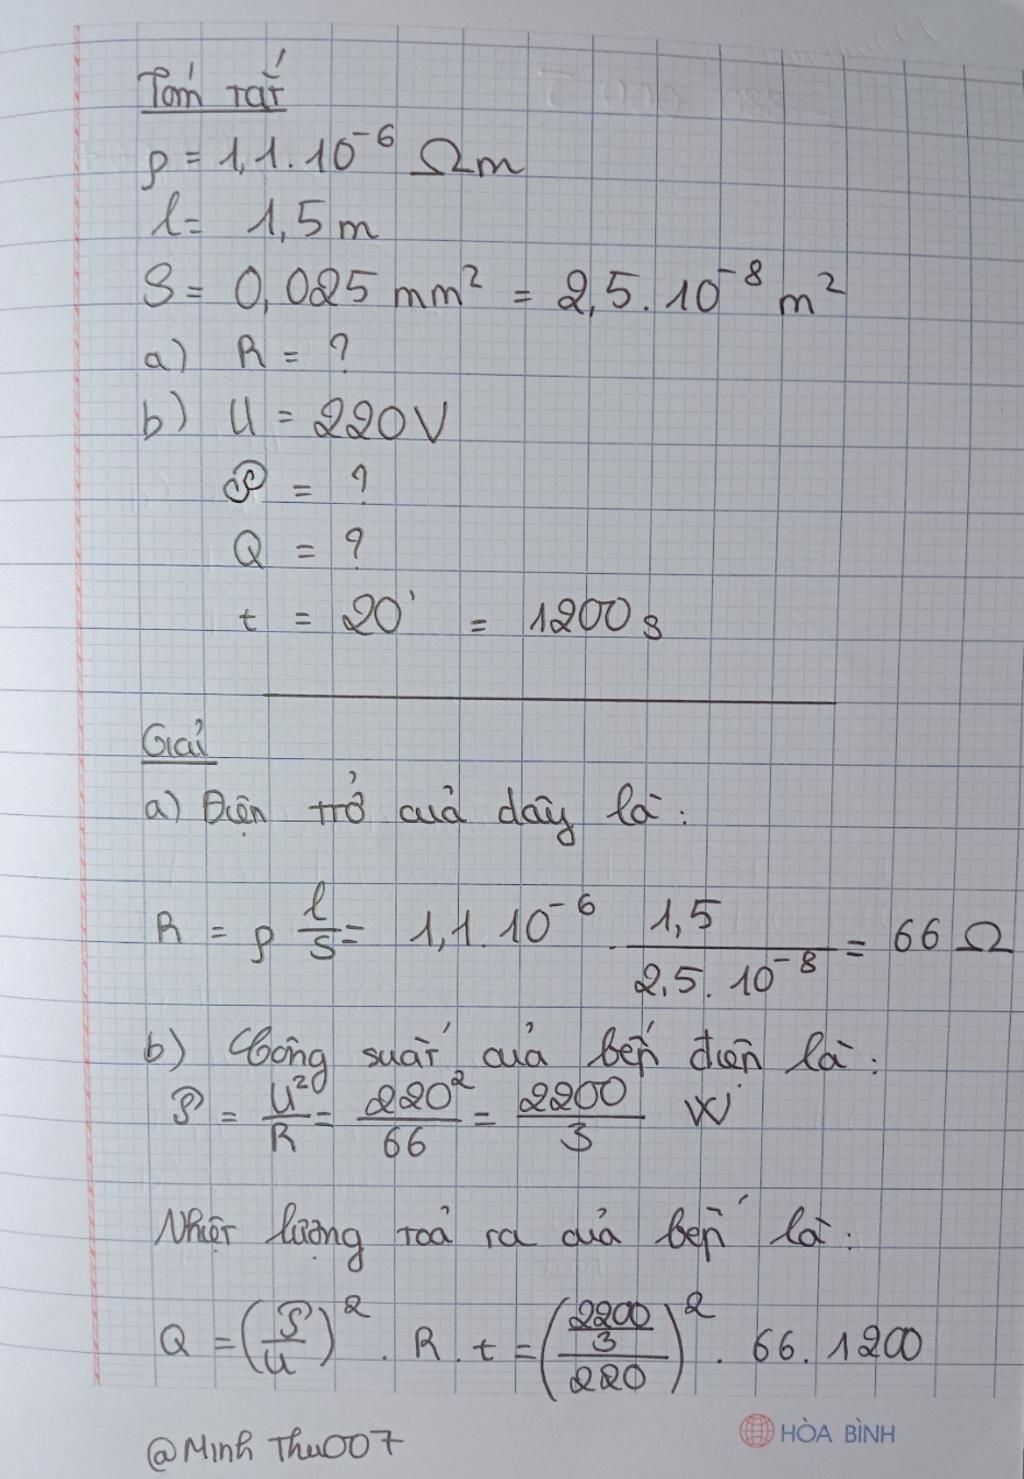 Tóm tắt
ρ = 1,1.10⁻⁶ Ωm
l = 1,5 m
S = 0,025 mm² = 2,5.10⁻⁸ m²
a) R = ?
b) U = 220V
𝒫 = ?
Q = ?
t = 20' = 1200 s
Giải
a) Điện trở của dây là:
R = ρ l/S = 1,1.10⁻⁶ . 1,5/2,5.10⁻⁸ = 66 Ω
b) Công suất của bếp điện là:
𝒫 = U²/R = 220²/66 = 2200/3 W
Nhiệt lượng toả ra của bếp là:
Q = (𝒫/U)² . R . t = ((2200/3)/220)² . 66 . 1200
@Minh Thu007
HÒA BÌNH